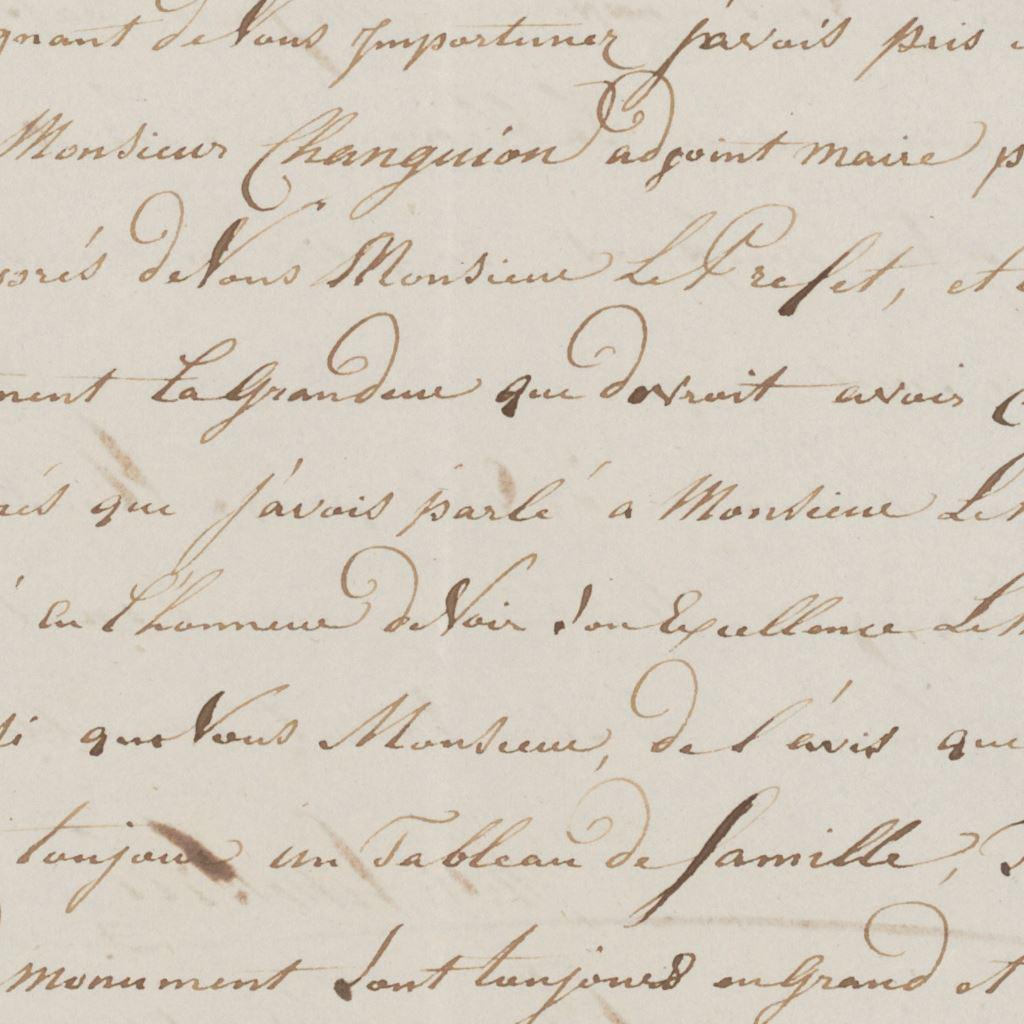 gnant de Vous Importuner j'avois pris
Monsieur Changuion adjoint maire
prés de Vous Monsieur Le Prefet, et
ment La Grandeur que devroit avoir
que j'avois parlé a Monsieur Le
eu l'honneur de Voir Son Excellence Le
si que Vous Monsieur, de l'avis que
toujour un Tableau de famille,
monument Sont toujours en Grand et